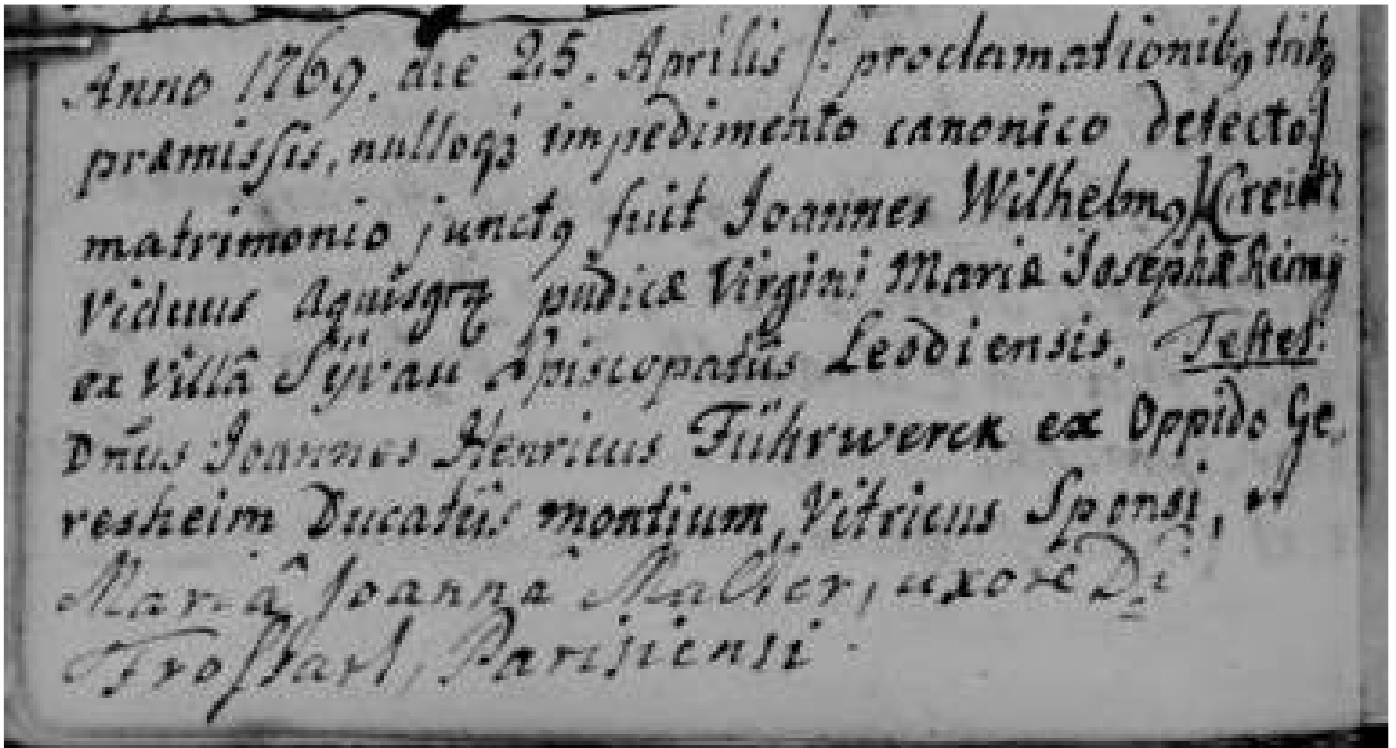 Anno 1769. die 25. Aprilis /: proclamationibꝰ tribꝰ
præmissis, nulloqꝫ impedimento canonico detecto /
matrimonio junctꝰ fuit Joannes Wilhelmꝰ
Viduus pudicæ Virgini Mariæ Josephæ Rémÿ
ex Villâ Episcopatûs Leodiensis. Testes:
Dn̄us Joannes Henricus Führwerck ex Oppido Ge,
resheim Ducatûs montium, Vitricus Sponsi, et
Mariâ Joannâ, uxore Dni
Frossart, Parisiensi.